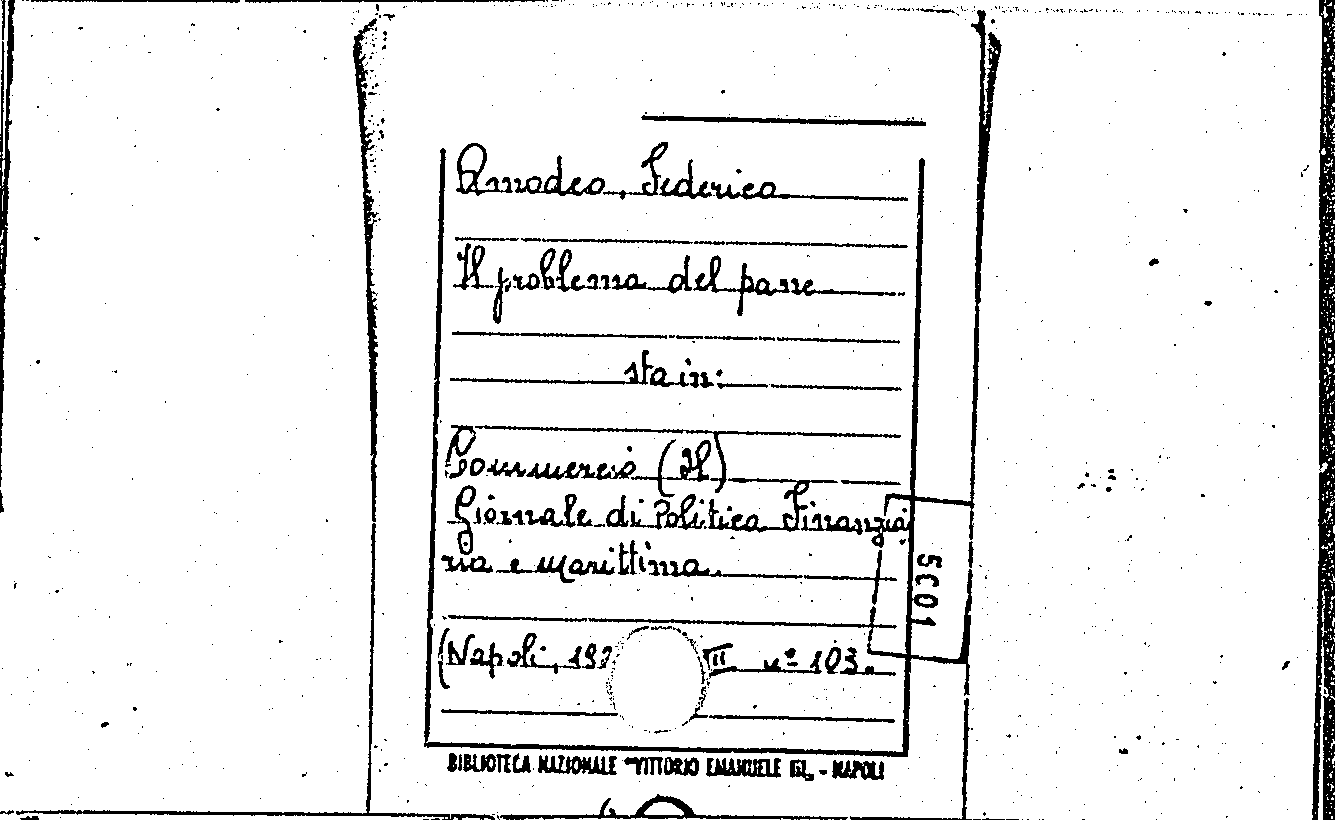 Amodeo, Federico
Il problema del pane
sta in:
Commercio (Il)
Giornale di Politica Finanzia
ria e marittima.
(Napoli, II n° 103.
5C01
BIBLIOTECA NAZIONALE "VITTORIO EMANUELE III„ - NAPOLI